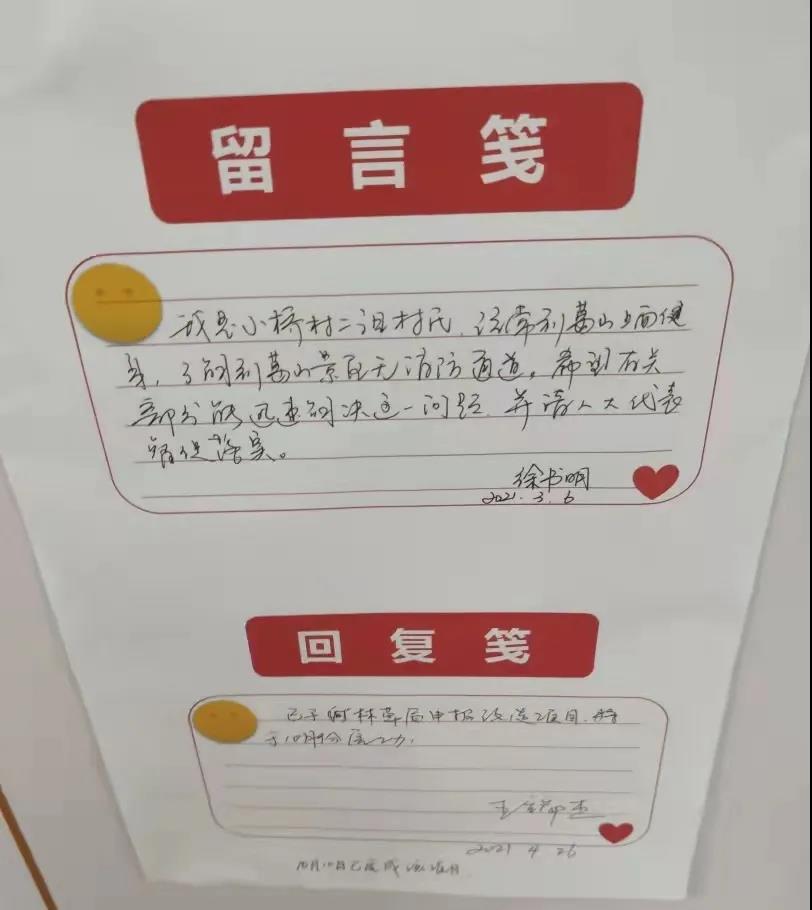 留言笺
我是小桥村二组村民,经常到葛山上面健
身,了解到葛山景区无消防通道。希望有关
部分能迅速解决这一问题,并请人大代表
督促落实。
徐书明
2021.3.6
回复笺
已予向林草局申报改造项目,将
于10月份完工。
2021 4 26
10月10日已完成该项目